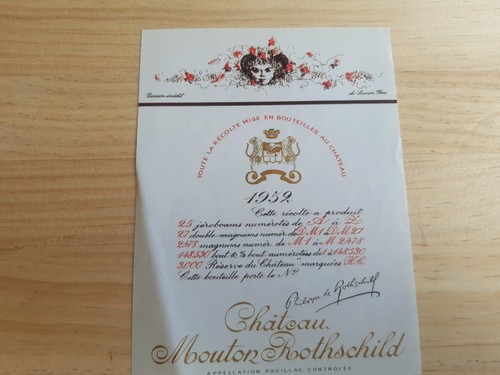 Dessin inédit de Léonor Fini
TOUTE LA RÉCOLTE MISE EN BOUTEILLES AU CHÂTEAU
1952
Cette récolte a produit
25 jéroboams numérotés de A à Z
27 double-magnums numér. de DM1 à DM27
2478 magnums numér. de M1 à M2478
148.530 bout. & ½ bout. numérotées de 1 à 148.530
3.000 "Réserve du Château" marquées R.C.
Cette bouteille porte le Nº
Philippe de Rothschild
Château
Mouton Rothschild
APPELLATION PAUILLAC CONTRÔLÉE